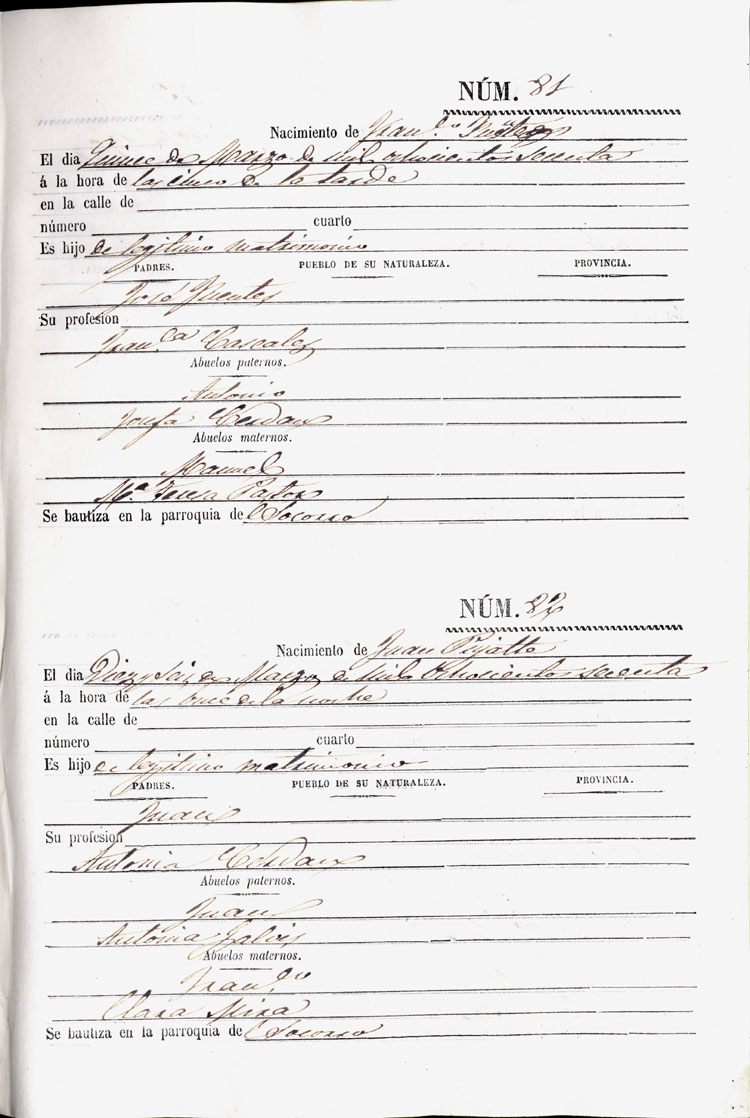 NÚM. 81
Nacimiento de Fran.co Fuentes
El dia Quince de Marzo de mil ochocientos sesenta
á la hora de las cinco de la tarde
en la calle de
número cuarto
Es hijo de legitimo matrimonio
PADRES. PUEBLO DE SU NATURALEZA. PROVINCIA.
José Fuentes
Su profesion
Fran.ca Cascales
Abuelos paternos.
Antonio
Josefa Cerdan
Abuelos maternos.
Manuel
M.a Teresa Pastor
Se bautiza en la parroquia de Socorro
NÚM. 82
Nacimiento de Juan Pujalte
El dia Diez y seis de Marzo de mil ochocientos sesenta
á la hora de las once de la noche
en la calle de
número cuarto
Es hijo de legitimo matrimonio
PADRES. PUEBLO DE SU NATURALEZA. PROVINCIA.
Juan
Su profesion
Antonia Cerdan
Abuelos paternos.
Juan
Antonia Galvis
Abuelos maternos.
Fran.co
Clara Mira
Se bautiza en la parroquia de Socorro